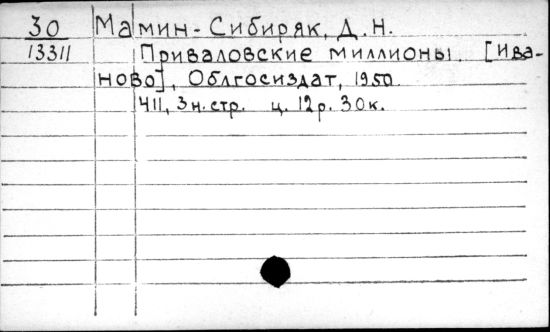 30 Мамин-Сибиряк, Д.Н.
13311 Приваловские миллионы. [Ива-
ново], Облгосиздат, 1950.
411, 3 н. стр. ц. 12р. 30к.